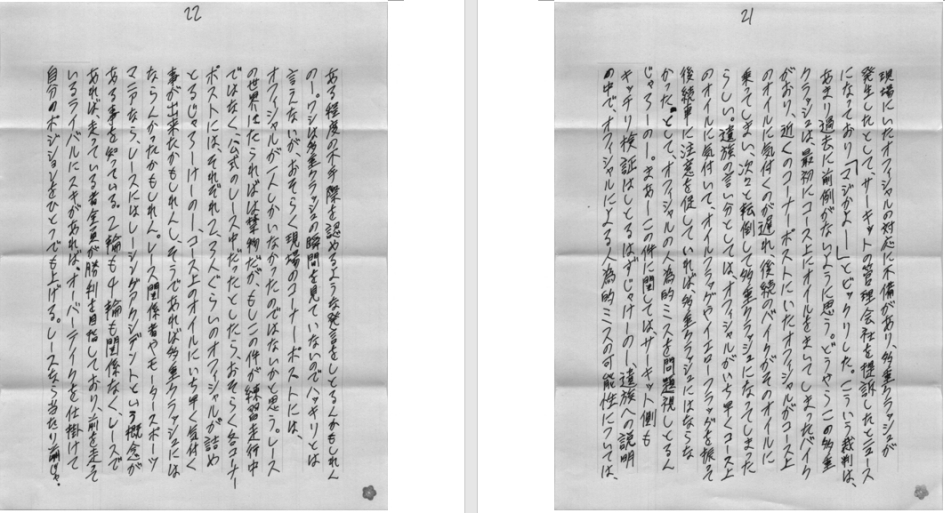 21
現場にいたオフィシャルの対応に不備があり、多重クラッシュが
発生したとして、サーキットの管理会社を提訴したとニュース
になっており「マジかよー」とビックリした。こういう裁判は、
あまり過去に前例がないように思う。どうやらこの多重
クラッシュは、最初にコース上にオイルをまいてしまったバイク
がおり、近くのコーナーポストにいたオフィシャルがコース上
のオイルに気付くのが遅れ、後続のバイクがそのオイルに
乗ってしまい、次々と転倒して多重クラッシュになってしまった
らしい。遺族の言い分としては、オフィシャルがいち早くコース上
のオイルに気付いて、オイルフラッグやイエローフラッグを振って
後続車に注意を促していれば、多重クラッシュにはならな
かった。として、オフィシャルの人為的ミスを問題視しとるん
じゃろーのー。まあーこの件に関しては、サーキット側も
キッチリ検証はしとるはずじゃけーのー、遺族への説明
の中で、オフィシャルによる人為的ミスの可能性については、
22
ある程度の不手際を認めるような発言をしとるんかもしれん
のー。ワシは多重クラッシュの瞬間を見ていないのでハッキリとは
言えないが、おそらく現場のコーナーポストには、
オフィシャルが一人しかいなかったのではないかと思う。レース
の世界に「たられば」は禁物だが、もしこの件が練習走行中
ではなく、公式のレース中だったとしたら、おそらく各コーナー
ポストには、それぞれ2、3人ぐらいのオフィシャルが詰め
とるじゃろーけーのー、コース上のオイルにいち早く気付く
事が出来たかもしれんし、そうであれば多重クラッシュには
ならんかったかもしれん。レース関係者やモータースポーツ
マニアなら、レースにはレーシングアクシデントという概念が
ある事を知っている。2輪も4輪も関係なく、レースで
あれば、走っている者全員が勝利を目指しており、前を走って
いるライバルにスキがあれば、オーバーテイクを仕掛けて
自分のポジションをひとつでも上げる。レースなら当たり前じゃ。